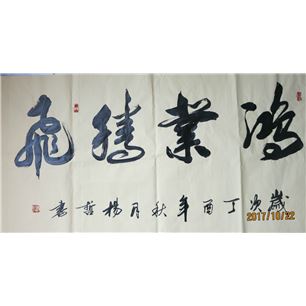 鴻業騰飛
歲次丁酉年秋月楊哲書
2017/10/22